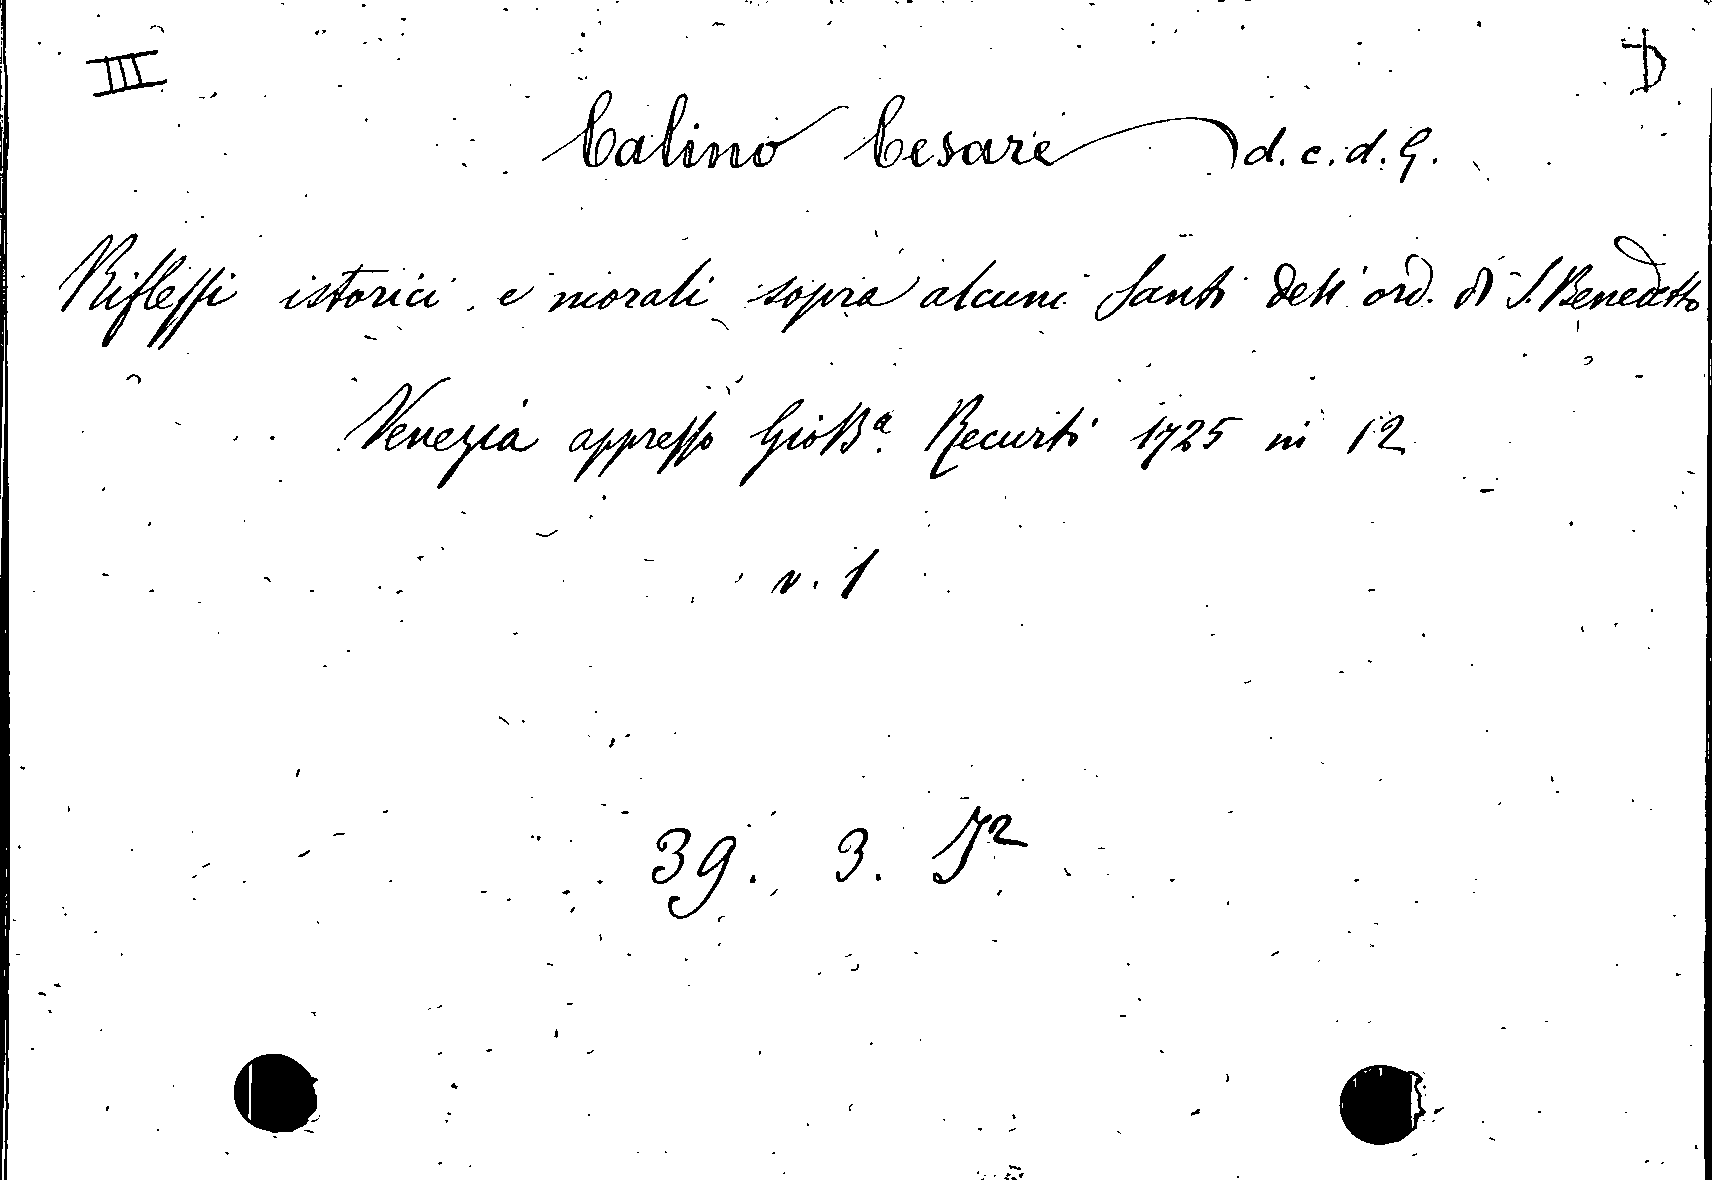 III D
Calino Cesare d. c. d. G.
Riflessi istorici e morali sopra alcuni Santi dell' ord. di S. Benedetto
Venezia appresso Gio Bª. Recurti 1725 in 12
v. 1
39. 3.